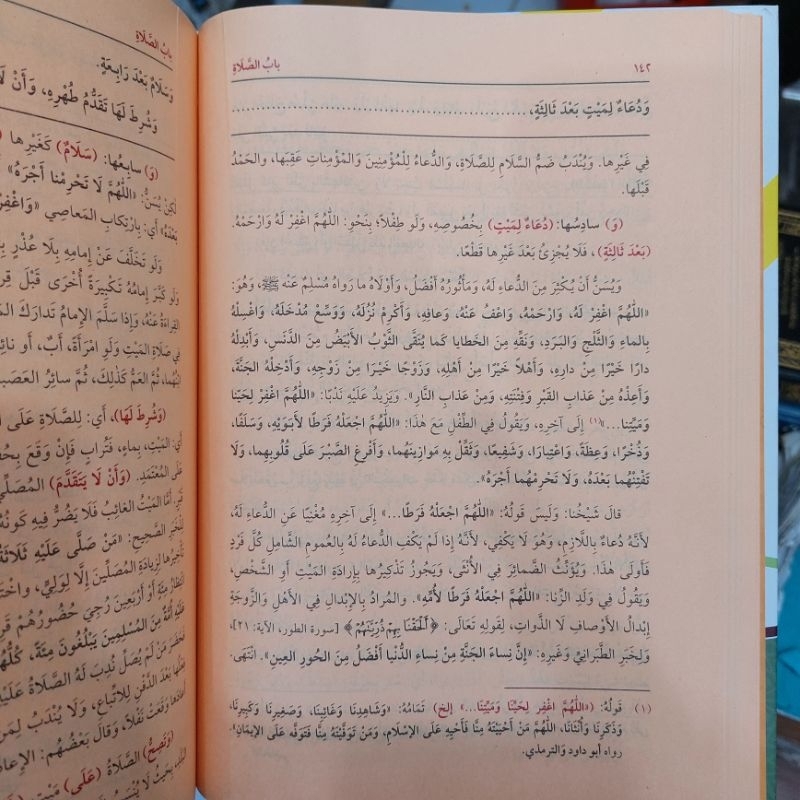 ١٤٢
بابُ الصَّلَاةِ
وَدُعَاءٌ لِمَيْتٍ بَعْدَ ثَالِثَةٍ، ........................................
فِي غَيْرِها. وَيُنْدَبُ ضَمُّ السَّلَامِ لِلصَّلَاةِ، وَالدُّعاءُ لِلْمُؤْمِنِينَ وَالْمُؤْمِناتِ عَقِبَها، والحَمْدُ
قَبْلَها.
(وَ) سادِسُها: (دُعَاءٌ لِمَيْتٍ) بِخُصُوصِهِ، وَلَو طِفْلًا؛ بِنَحْوِ: اللّٰهُمَّ اغْفِرْ لَهُ وَارْحَمْهُ.
(بَعْدَ ثَالِثَةٍ)، فَلَا يُجْزِئُ بَعْدَ غَيْرِها قَطْعًا.
وَيُسَنُّ أَنْ يُكْثِرَ مِنَ الدُّعاءِ لَهُ، وَمَأْثُورُهُ أَفْضَلُ، وَأَوْلَاهُ ما رَواهُ مُسْلِمٌ عَنْهُ ﷺ، وَهُوَ:
«اللّٰهُمَّ اغْفِرْ لَهُ، وَارْحَمْهُ، وَاعْفُ عَنْهُ، وَعافِهِ، وَأَكْرِمْ نُزُلَهُ، وَوَسِّعْ مُدْخَلَهُ، وَاغْسِلْهُ
بِالماءِ وَالثَّلْجِ وَالبَرَدِ، وَنَقِّهِ مِنَ الخَطايا كَما يُنَقَّى الثَّوْبُ الأَبْيَضُ مِنَ الدَّنَسِ، وَأَبْدِلْهُ
دارًا خَيْرًا مِنْ دارِهِ، وَأَهْلًا خَيْرًا مِنْ أَهْلِهِ، وَزَوْجًا خَيْرًا مِنْ زَوْجِهِ، وَأَدْخِلْهُ الجَنَّةَ،
وَأَعِذْهُ مِنْ عَذابِ القَبْرِ وَفِتْنَتِهِ، وَمِنْ عَذابِ النَّارِ». وَيَزِيدُ عَلَيْهِ نَدْبًا: «اللّٰهُمَّ اغْفِرْ لِحَيِّنا
وَمَيِّتِنا...»(١) إِلَى آخِرِهِ، وَيَقُولُ فِي الطِّفْلِ مَعَ هٰذَا: «اللّٰهُمَّ اجْعَلْهُ فَرَطًا لِأَبَوَيْهِ، وَسَلَفًا،
وَذُخْرًا، وَعِظَةً، وَاعْتِبَارًا، وَشَفِيعًا، وَثَقِّلْ بِهِ مَوازِينَهُما، وَأَفْرِغِ الصَّبْرَ عَلَى قُلُوبِهِما، وَلَا
تَفْتِنْهُما بَعْدَهُ، وَلَا تَحْرِمْهُما أَجْرَهُ».
قالَ شَيْخُنا: وَلَيسَ قَوْلُهُ: «اللّٰهُمَّ اجْعَلْهُ فَرَطًا...» إِلَى آخِرِهِ مُغْنِيًا عَنِ الدُّعاءِ لَهُ،
لِأَنَّهُ دُعاءٌ بِاللَّازِمِ، وَهُوَ لَا يَكْفِي، لِأَنَّهُ إِذا لَمْ يَكْفِ الدُّعاءُ لَهُ بِالعُمومِ الشَّامِلِ كُلَّ فَرْدٍ
فَأَولَى هٰذَا. وَيُؤَنِّثُ الضَّمائِرَ فِي الأُنْثَى، وَيَجُوزُ تَذْكِيرُها بِإِرادَةِ المَيْتِ أَو الشَّخْصِ،
وَيَقُولُ فِي وَلَدِ الزِّنا: «اللّٰهُمَّ اجْعَلْهُ فَرَطًا لِأُمِّهِ». وَالمُرادُ بِالإِبْدالِ فِي الأَهْلِ وَالزَّوجَةِ
إِبْدالُ الأَوْصافِ لَا الذَّواتِ، لِقولِهِ تَعالَى: ﴿أَلْحَقْنَا بِهِمْ ذُرِّيَّتَهُمْ﴾ [سورة الطور، الآية: ٢١]،
وَلِخَبَرِ الطَّبَرانِيِّ وَغَيرِهِ: «إِنَّ نِساءَ الجَنَّةِ مِنْ نِساءِ الدُّنْيا أَفْضَلُ مِنَ الحُورِ العِينِ». انْتَهَى.
(١) قَولُهُ: («اللّٰهُمَّ اغْفِر لِحَيِّنَا وَمَيِّتِنَا...» إلخ) تَمَامُهُ: «وَشَاهِدِنَا وَغَائِبِنَا، وَصَغِيرِنَا وَكَبِيرِنَا،
وَذَكَرِنَا وَأُنْثَانَا، اللّٰهُمَّ مَنْ أَحْيَيْتَهُ مِنَّا فَأَحْيِهِ عَلَى الإِسْلَامِ، وَمَنْ تَوَفَّيْتَهُ مِنَّا فَتَوَفَّهُ عَلَى الإِيمَانِ».
رواه أبو داود والترمذي.
بابُ الصَّلَاةِ
وَسَلَامٌ بَعْدَ رَابِعَةٍ.
وَشُرِطَ لَهَا تَقَدُّمُ طُهْرِهِ، وَأَنْ لَا
(وَ) سابِعُها: (سَلَامٌ) كَغَيْرِها
لَكِنْ يُسَنُّ: «اللّٰهُمَّ لَا تَحْرِمْنا أَجْرَهُ»
بَعْدَهُ» أَي: بِارْتِكابِ المَعاصِي «وَاغْفِرْ
وَلَو تَخَلَّفَ عَنْ إِمامِهِ بِلَا عُذْرٍ
وَلَو كَبَّرَ إِمامُهُ تَكْبِيرَةً أُخْرَى قَبْلَ
القِراءَةُ عَنْهُ، وَإِذا سَلَّمَ الإِمامُ تَدارَكَ
فِي صَلَاةِ المَيْتِ وَلَو امْرَأَةً، أَبٌ، أَو
ابْنُهُما، ثُمَّ العَمُّ كَذٰلِكَ، ثُمَّ سائِرُ
(وَشُرِطَ لَها)، أَي: لِلصَّلَاةِ عَلَى
أَي: المَيْتِ، بِماءٍ، فَتُرابٍ فَإِنْ وَقَعَ
عَلَى المُعْتَمَدِ. (وَأَنْ لَا يَتَقَدَّمَ) المُصَلِّي
أَمَّا المَيْتُ الغائِبُ فَلَا يَضُرُّ فِيهِ كَونُهُ
لِلْخَبَرِ الصَّحِيحِ: «مَنْ صَلَّى عَلَيْهِ ثَلَاثَةُ
تَأْخِيرُها لِزِيادَةِ المُصَلِّينَ إِلَّا لِوَلِيٍّ،
انْتِظارُ مِئَةٍ أَو أَرْبَعِينَ رُجِيَ حُضُورُهُمْ
عَلَيْهِ أُمَّةٌ مِنَ المُسْلِمِينَ يَبْلُغُونَ مِئَةً، كُلُّهُمْ
مَنْ لَمْ يُصَلِّ نُدِبَ لَهُ الصَّلَاةُ عَلَيْهِ
بَعْدَ الدَّفْنِ لِلِاتِّباعِ، وَلَا يُنْدَبُ لِمَنْ
وَقَعَتْ نَفْلًا، وَقالَ بَعْضُهُمْ:
(وَتَصِحُّ) الصَّلَاةُ (عَلَى) مَيْتٍ